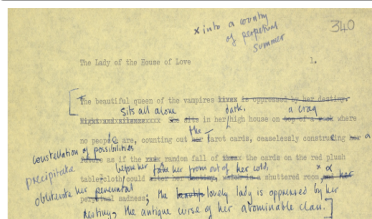 x into a country
of perpetual
summer
340
The Lady of the House of Love
1.
[The beautiful queen of the vampires is oppressed by her destiny.
sits all alone
dark,
a crag
in her high house on where
no people are, counting out the Tarot cards, ceaselessly constructing
constellation of possibilities
as if the random fall of the cards on the red plush
precipitate
her from out of her cold,
tablecloth could shuttered room
obliterate her perennial
sadness; the lovely lady is oppressed by her
destiny, the antique curse of her abominable clan.]